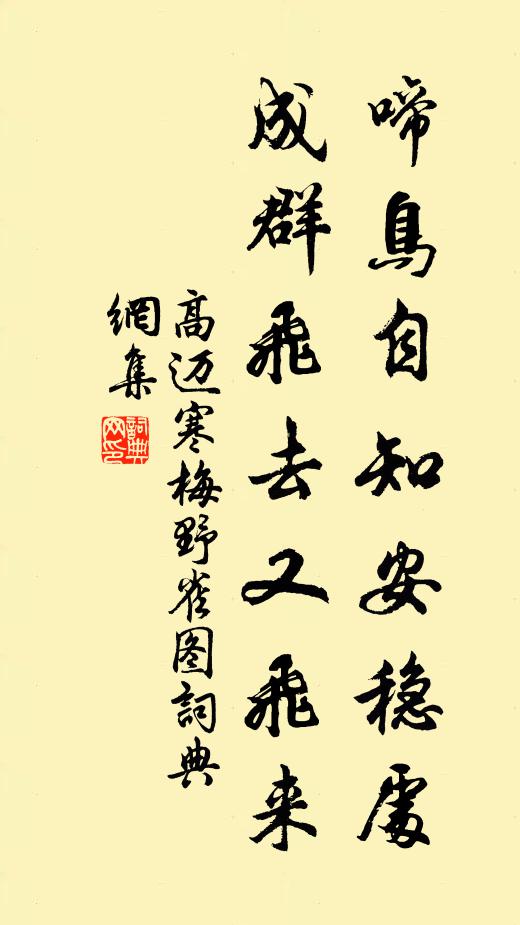 啼鳥自知安穏處
成群飛去又飛来
高迈寒梅野雀图詞典
網集
詞典
网印